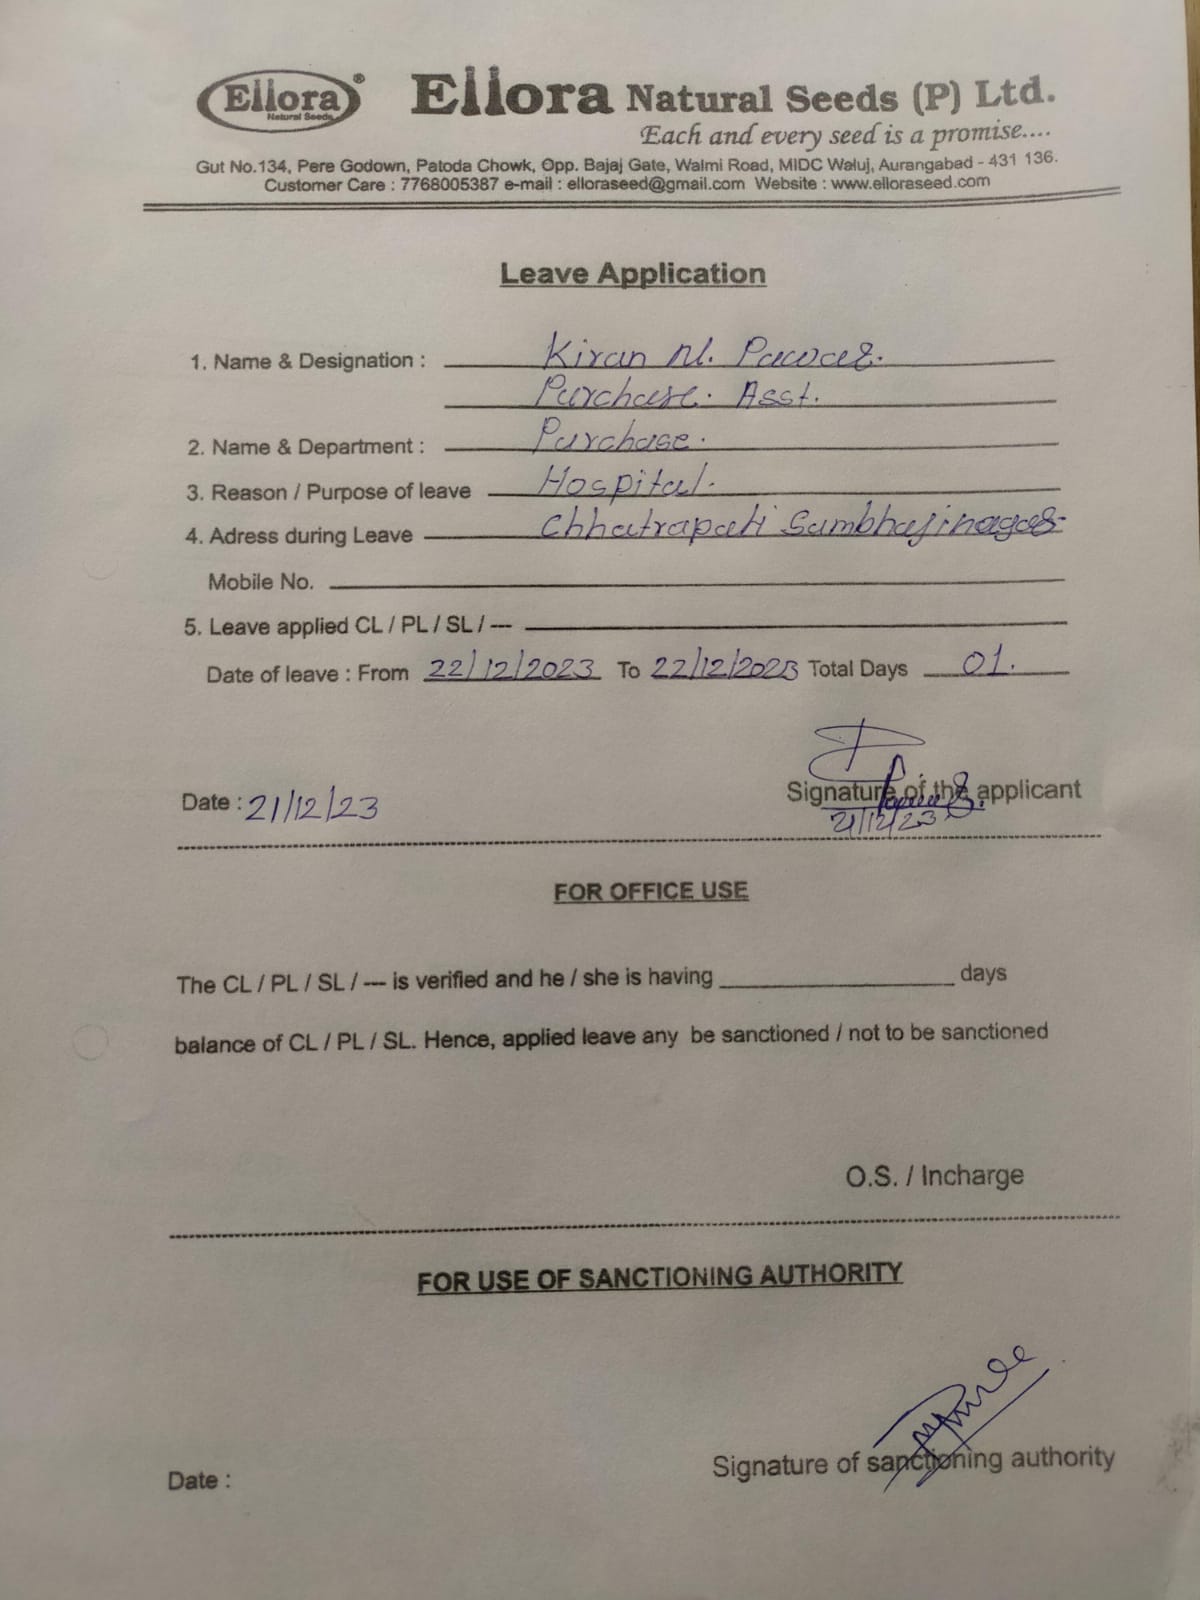 Ellora® Ellora Natural Seeds (P) Ltd.
Natural Seeds
Each and every seed is a promise....
Gut No.134, Pere Godown, Patoda Chowk, Opp. Bajaj Gate, Walmi Road, MIDC Waluj, Aurangabad - 431 136.
Customer Care : 7768005387 e-mail : elloraseed@gmail.com Website : www.elloraseed.com
Leave Application
1. Name & Designation : Kiran M. Pawar.
Purchase. Asst.
2. Name & Department : Purchase.
3. Reason / Purpose of leave Hospital.
4. Adress during Leave Chhatrapati Sambhajinagar
Mobile No.
5. Leave applied CL / PL / SL / ---
Date of leave : From 22/12/2023 To 22/12/2023 Total Days 01.
Date : 21/12/23 Signature of the applicant
21/12/23
FOR OFFICE USE
The CL / PL / SL / --- is verified and he / she is having ____ days
balance of CL / PL / SL. Hence, applied leave any be sanctioned / not to be sanctioned
O.S. / Incharge
FOR USE OF SANCTIONING AUTHORITY
Date : Signature of sanctioning authority